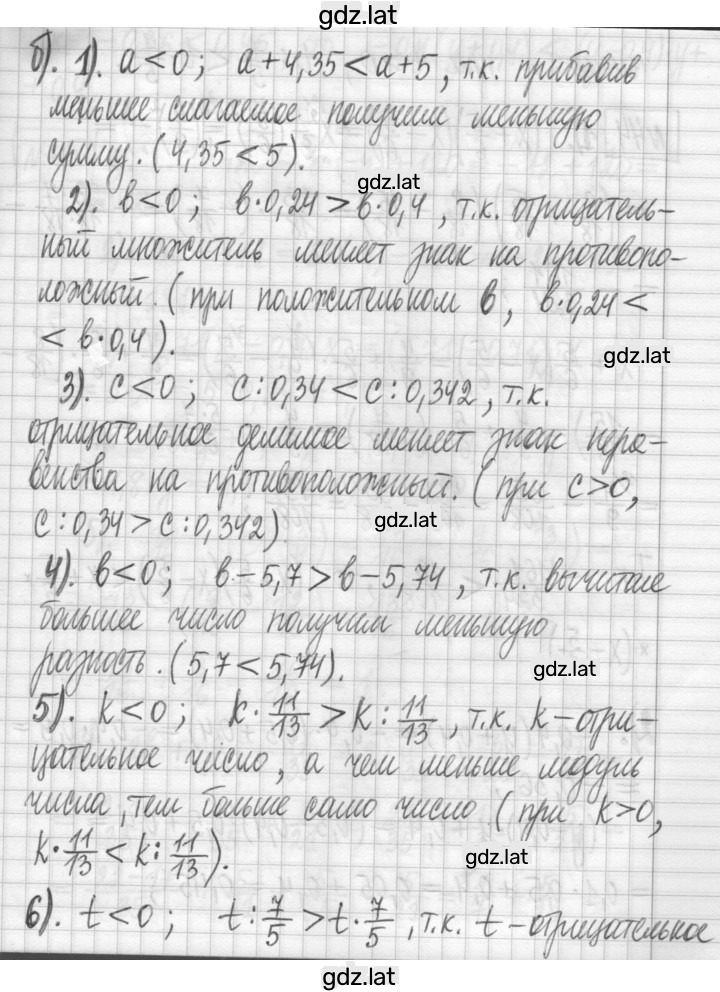 gdz.lat
б). 1). a < 0 ; a + 4,35 < a + 5 , т.к. прибавив
меньшее слагаемое получим меньшую
сумму. ( 4,35 < 5).
gdz.lat
2). в < 0 ; в · 0,24 > в · 0,4 , т.к. отрицатель-
ный множитель меняет знак на противопо-
ложный. ( при положительном в , в · 0,24 <
< в · 0,4 ).
gdz.lat
3). c < 0 ; c : 0,34 < c : 0,342 , т.к.
отрицательное делимое меняет знак нера-
венства на противоположный. ( при c > 0,
c : 0,34 > c : 0,342)
gdz.lat
4). в < 0 ; в – 5,7 > в – 5,74 , т.к. вычитая
большее число получим меньшую
разность. ( 5,7 < 5,74).
gdz.lat
5). k < 0 ; k · 11/13 > k : 11/13 , т.к. k – отри-
цательное число, а чем меньше модуль
числа, тем больше само число ( при k > 0,
k · 11/13 < k : 11/13 ).
gdz.lat
6). t < 0 ; t : 7/5 > t · 7/5 , т.к. t – отрицательное
gdz.lat